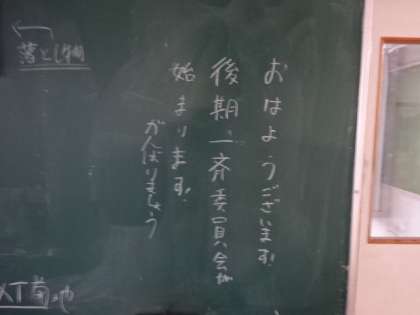 おはようございます。
後期一斉委員会が
始まります。
がんばりましょう
落とし物